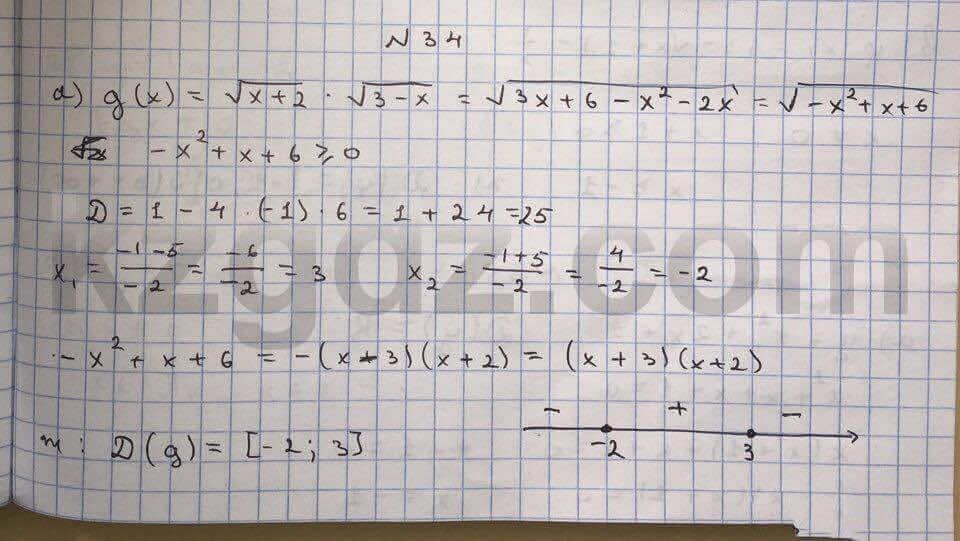 № 34
а) g(x) = √(x+2) · √(3-x) = √(3x+6-x²-2x) = √(-x²+x+6)
-x²+x+6 ⩾ 0
D = 1 - 4 · (-1) · 6 = 1 + 24 = 25
x₁ = (-1-5)/(-2) = (-6)/(-2) = 3 x₂ = (-1+5)/(-2) = 4/(-2) = -2
-x²+x+6 = -(x-3)(x+2) = (x+3)(x+2)
- + -
-2 3
m: D(g) = [-2; 3]
kzgdz.com